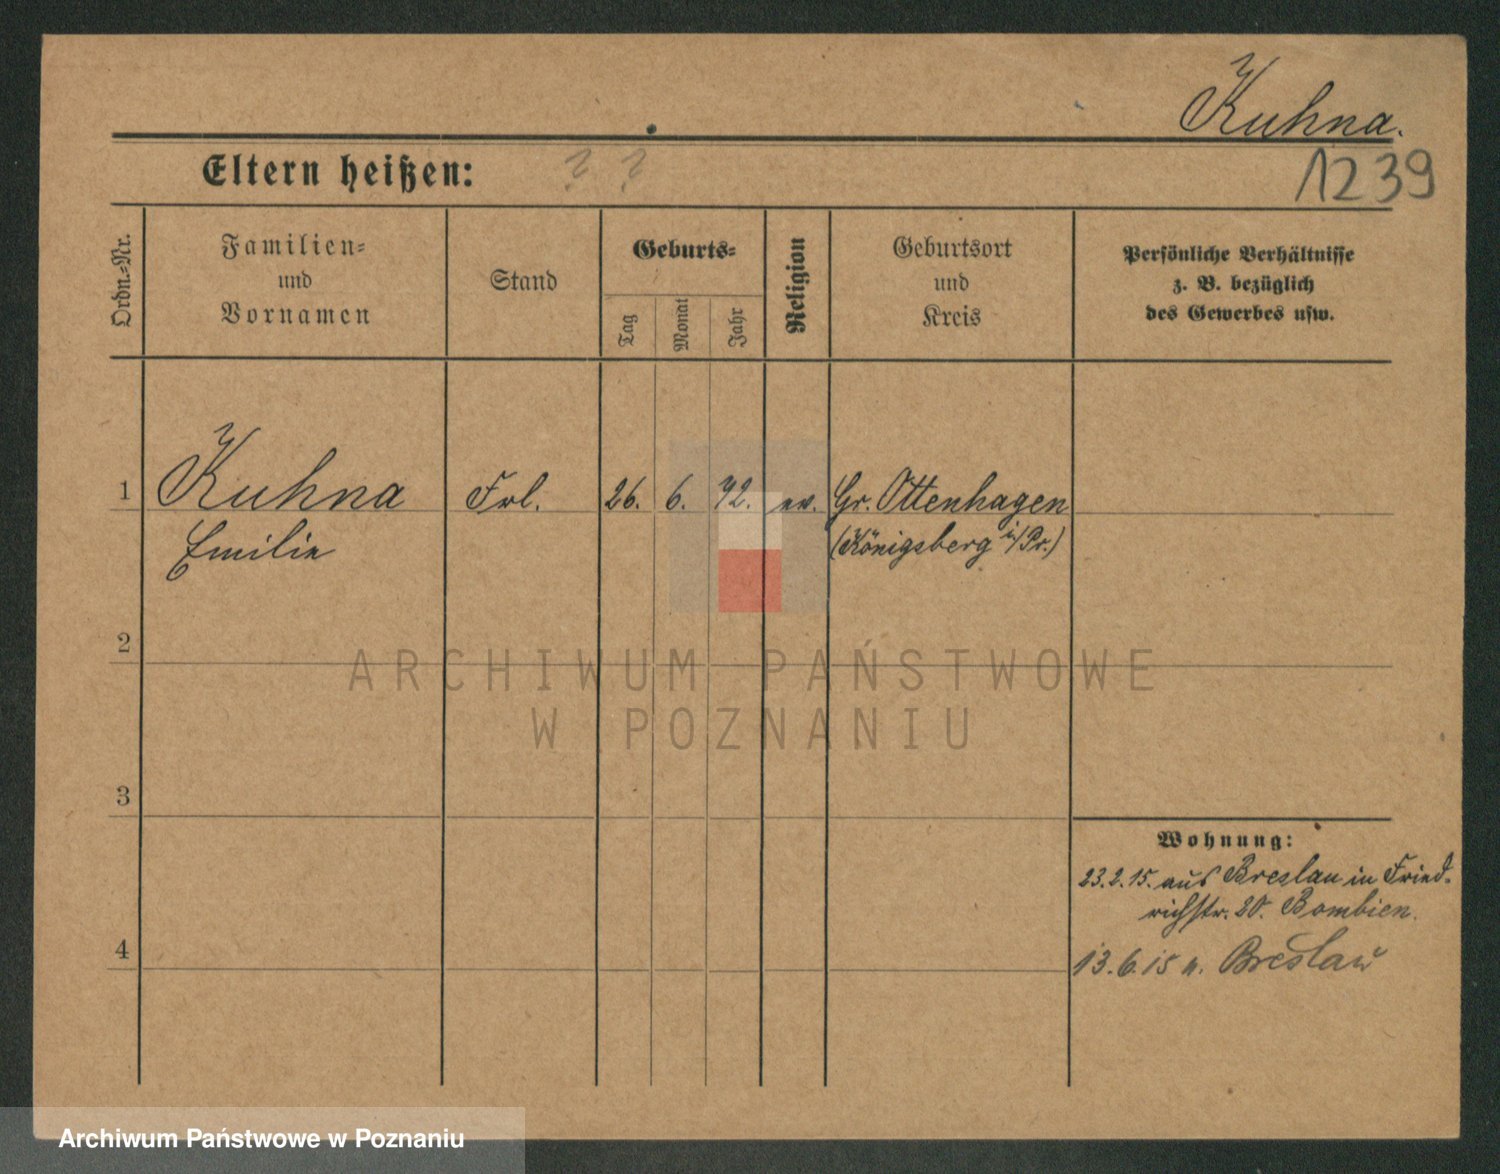 Kuhna.
Eltern heißen: ? ?
1239
Ordn.=Nr.
Familien=
und
Vornamen
Stand
Geburts=
Tag
Monat
Jahr
Religion
Geburtsort
und
Kreis
Persönliche Verhältnisse
z. B. bezüglich
des Gewerbes usw.
1 Kuhna Frl. 26. 6. 72. ev. Gr. Ottenhagen
Emilie (Königsberg i/Pr.)
2
ARCHIWUM PAŃSTWOWE
W POZNANIU
3
Wohnung:
23.2.15. aus Breslau in Fried-
richstr. 20. Bombien.
4
13.6.15 n. Breslau
Archiwum Państwowe w Poznaniu